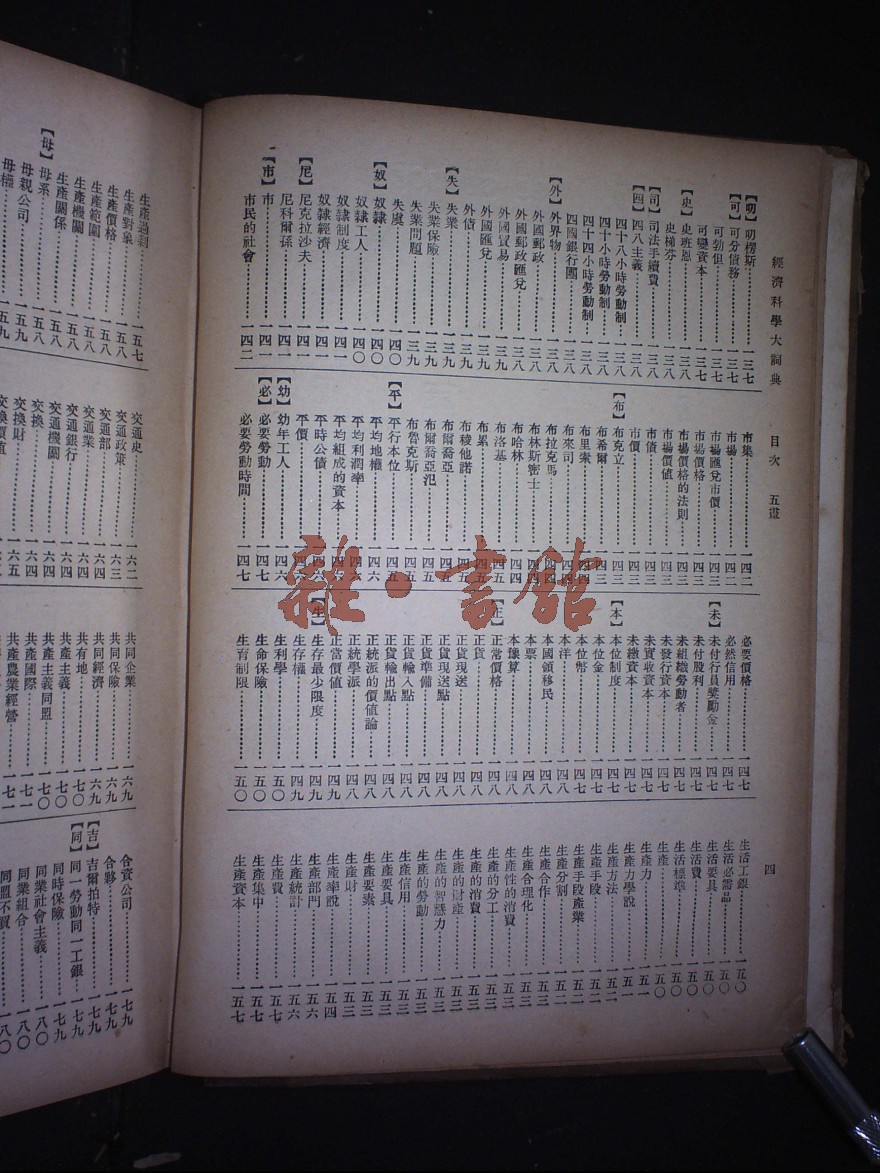 經濟科學大詞典 目次 五畫
四
【叨】叨楞斯……一三七
【可】可分債務……一三七
可變資本……一三七
【史】史班恩……一三八
史梯芬……一三八
【司】司法手續費……一三八
【四】四八主義……一三八
四十八小時勞動制……一三八
四十小時勞動制……一三八
四十四小時勞動制……一三八
四國銀行團……一三八
【外】外界物……一三八
外國郵政……一三八
外國郵政匯兌……一三八
外國貿易……一三九
外國匯兌……一三九
外債……一三九
【失】失業……一三九
失業保險……一三九
失業問題……一三九
失虞……一四〇
【奴】奴隸……一四〇
奴隸工人……一四〇
奴隸制度……一四一
奴隸經濟……一四一
【尼】尼克拉沙夫……一四一
尼科爾孫……一四一
【市】市……一四一
市民的社會……一四二
市集……一四二
市場……一四二
市場匯兌市價……一四三
市場價格……一四三
市場價格的法則……一四三
市場價值……一四三
市債……一四三
市價……一四三
【布】布克立……一四三
布希爾
布里索
布來司
布拉克馬
布林斯密士
布哈林
布洛基
布累
布稜他諾
布爾喬亞
布爾喬亞氾
布魯克斯
【平】平行本位
平均地權
平均利潤率
平均組成的資本
平時公債
平價
【幼】幼年工人……一四六
【必】必要勞動……一四七
必要勞動時間……一四七
必要價格……一四七
必然信用……一四七
【未】未付行員獎勵金……一四七
未付股利……一四七
未組織勞動者……一四七
未發行資本……一四七
未實收資本……一四七
未繳資本……一四七
【本】本位制度……一四七
本位金……一四七
本位幣……一四七
本洋……一四八
本國領移民……一四八
本票……一四八
本豫算……一四八
【正】正常價格……一四八
正貨……一四八
正貨現送……一四八
正貨現送點……一四八
正貨準備……一四八
正貨輸入點……一四八
正貨輸出點……一四八
正統派的價值論……一四八
正統學派……一四八
正當價值……一四九
【生】生存最少限度……一四九
生存權……一四九
生利學……一五〇
生命保險……一五〇
生育制限……一五〇
生活工銀……一五〇
生活必需品……一五〇
生活要具……一五〇
生活費……一五〇
生活標準……一五〇
生產力……一五〇
生產力學說……一五一
生產方法……一五一
生產手段……一五二
生產手段產業……一五二
生產分割……一五二
生產合作……一五三
生產合理化……一五三
生產性的消費……一五三
生產的分工……一五三
生產的消費……一五三
生產的財產……一五三
生產的智慧力……一五三
生產的勞動……一五三
生產信用……一五三
生產要具……一五三
生產要素……一五三
生產財……一五三
生產率說……一五四
生產部門……一五六
生產統計……一五六
生產費……一五七
生產集中……一五七
生產資本……一五七
生產過剩……一五七
生產對象……一五八
生產價格……一五八
生產範圍……一五八
生產機關……一五八
生產關係……一五八
【母】母系……一五八
母親公司……一五九
母權……一五九
交通史……一六二
交通政策……一六三
交通部……一六四
交通業……一六四
交通銀行……一六四
交通機關……一六四
交換……一六四
交換財……一六五
交換價值
共同企業……一六九
共同保險……一六九
共同經濟……一六九
共有地……一七〇
共產主義……一七〇
共產主義同盟……一七〇
共產國際……一七一
共產農業經營……一七一
合資公司……一七九
合夥……一七九
【吉】吉爾拍特……一七九
【同】同一勞動同一工銀……一七九
同時保險……一七九
同業社會主義……一八〇
同業組合……一八〇
同盟不買……一八〇
雜·書館